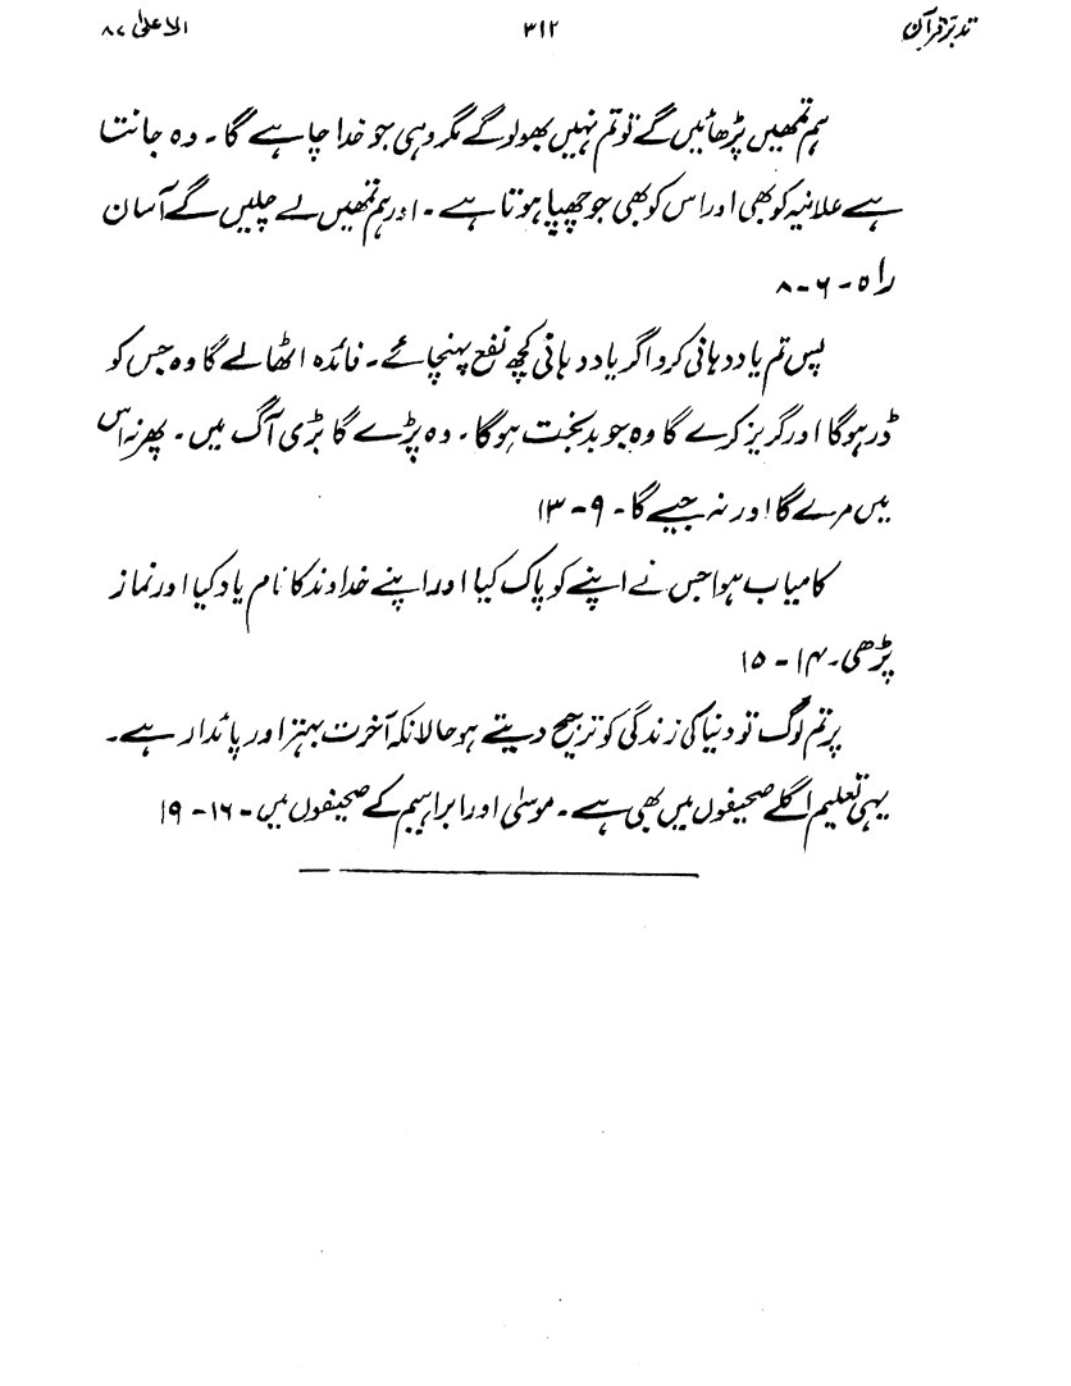 تدبرِ قرآن ۳۱۲ الاعلیٰ ۸۷
ہم تمھیں پڑھائیں گے تو تم نہیں بھولو گے مگر وہی جو خدا چاہے گا۔ وہ جانتا
ہے علانیہ کو بھی اور اس کو بھی جو چھپا ہوتا ہے۔ اور ہم تمھیں لے چلیں گے آسان
راہ۔ ۶-۸
پس تم یاددہانی کرو اگر یاددہانی کچھ نفع پہنچائے۔ فائدہ اٹھا لے گا وہ جس کو
ڈر ہوگا اور گریز کرے گا وہ جو بدبخت ہوگا۔ وہ پڑے گا بڑی آگ میں۔ پھر نہ اس
میں مرے گا اور نہ جیے گا۔ ۹-۱۳
کامیاب ہوا جس نے اپنے کو پاک کیا اور اپنے خداوند کا نام یاد کیا اور نماز
پڑھی۔ ۱۴-۱۵
پر تم لوگ تو دنیا کی زندگی کو ترجیح دیتے ہو حالانکہ آخرت بہتر اور پائدار ہے۔
یہی تعلیم اگلے صحیفوں میں بھی ہے۔ موسیٰ اور ابراہیم کے صحیفوں میں۔ ۱۶-۱۹